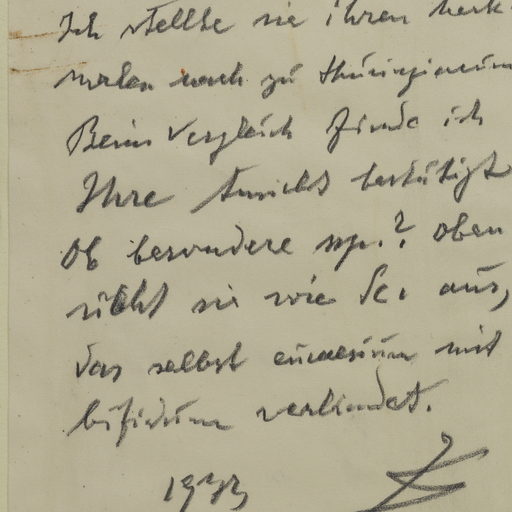 Ich stellte sie ihren Merk-
malen nach zu thüringiacum
Beim Vergleich finde ich
Ihre Ansicht bestätigt
Ob besondere sp.? oben
sieht sie wie Sc. aus,
das selbst cincessum mit
bifidum verbindet.
1933